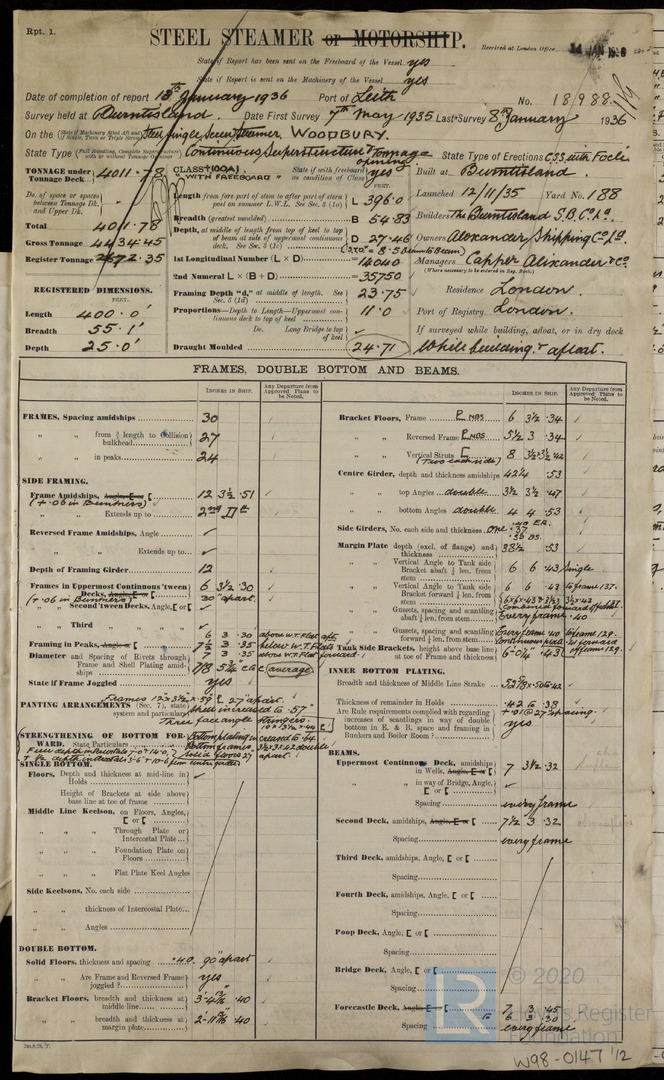 Rpt. 1.
STEEL STEAMER or MOTORSHIP.
Received at London Office 14 JAN 1936
State if Report has been sent on the Freeboard of the Vessel yes
State if Report is sent on the Machinery of the Vessel yes
Date of completion of report 13th January 1936 Port of Leith No. 18988
Survey held at Burntisland. Date First Survey 7th May 1935 Last Survey 8th January 1936
On the Steel Single Screw Steamer WOODBURY.
State Type Continuous Superstructure & Tonnage opening State Type of Erections C.S.S. with Focle
TONNAGE under Tonnage Deck 4011.78
Do. of space or spaces between Tonnage Dk. and Upper Dk.
Total 4011.78
Gross Tonnage 4434.45
Register Tonnage 2672.35
REGISTERED DIMENSIONS.
FEET.
Length 400.0'
Breadth 55.1'
Depth 25.0'
CLASS +100A1 "WITH FREEBOARD" State if with freeboard as condition of Class yes
FEET.
Length from fore part of stem to after part of stern post on summer L.W.L. See Sec. 3 (1a) L 396.0
Breadth (greatest moulded) B 54.83
Depth, at middle of length from top of keel to top of beam at side of uppermost continuous deck. See Sec. 3 (1c) D 27.46
1st Longitudinal Number (L × D) = 14040
2nd Numeral L × (B + D) = 35750
Framing Depth "d," at middle of length. See Sec. 5 (1d) 23.75
Proportions—Depth to Length—Uppermost continuous deck to top of keel 11.0
Do. Long Bridge to top of keel ✓
Draught Moulded 24.71
Built at Burntisland.
Launched 12/11/35 Yard No. 188
Builders The Burntisland S.B. Co. Ld.
Owners Alexander Shipping Co. Ld.
Managers Capper Alexander & Co.
(Where necessary to be entered in Reg. Book.)
Residence London.
Port of Registry London.
If surveyed while building, afloat, or in dry dock
While building & afloat.
FRAMES, DOUBLE BOTTOM AND BEAMS.
INCHES IN SHIP.
Any Departure from Approved Plans to be Noted.
FRAMES, Spacing amidships 30
" " from ⅗ length to Collision bulkhead 27
" " in peaks 24
SIDE FRAMING.
Frame Amidships, Angle, E or [ 12 3½ .51
(+ .06 in Bunkers)
" " Extends up to 2nd Dk
Reversed Frame Amidships, Angle ✓
" " Extends up to ✓
Depth of Framing Girder 12
Frames in Uppermost Continuous 'tween Decks, Angle, E or [ 6 3½ .30
(+ .06 in Bunkers) 30" apart.
" Second 'tween Decks, Angle, [ or [ ✓
" Third " " ✓
Framing in Peaks, Angle or [ 6 3 .30 above W.T. Flat aft
7½ 3 .35 below W.T. Flats
7 3 .35 above W.T. Flat forward.
Diameter and Spacing of Rivets through Frame and Shell Plating amidships 7/8 5¼ c to c (average)
State if Frame Joggled yes
PANTING ARRANGEMENTS (Sec. 7), state system and particulars
Frames 12 × 3½ × .59 [ 27" apart.
Shell increased to .57"
Three face angle stringers.
STRENGTHENING OF BOTTOM FORWARD. State Particulars
Bottom plating increased to .64
SINGLE BOTTOM.
Floors, Depth and thickness at mid-line in Holds ✓
Height of Brackets at side above base line at toe of frame
Middle Line Keelson, on Floors, Angles, [ or [
" " Through Plate or Intercostal Plate
" " Foundation Plate on Floors
" " Flat Plate Keel Angles
Side Keelsons, No. each side
" " thickness of Intercostal Plate
" " Angles
DOUBLE BOTTOM.
Solid Floors, thickness and spacing .40. 90" apart
" " Are Frame and Reversed Frame joggled? yes
Bracket Floors, breadth and thickness at middle line .40
" " breadth and thickness at margin plate .40
Bracket Floors, Frame 6 3½ .34
" " Reversed Frame 5½ 3 .34
" " Vertical Struts [ 8 3½ × 3½ .42
(Two each side)
Centre Girder, depth and thickness amidships 42¼ .53
" " top Angles double 3½ 3½ .47
" " bottom Angles double 4 4 .53
Side Girders, No. each side and thickness One .37
Margin Plate depth (excl. of flange) and thickness 38½ .53
" " Vertical Angle to Tank side Bracket abaft ¼ len. from stem 6 6 .43 single
" " Vertical Angle to Tank side Bracket forward ¼ len. from stem 6 6 .43 to frame 137.
" " Gussets, spacing and scantling abaft ¼ len. from stem Every frame .40
" " Gussets, spacing and scantling forward ¼ len. from stem Every frame .40 to frame 129.
Tank Side Brackets, height above base line at toe of Frame and thickness .43
INNER BOTTOM PLATING.
Breadth and thickness of Middle Line Strake
Thickness of remainder in Holds .42 to .38
Are Rule requirements complied with regarding increases of scantlings in way of double bottom in E. & B. space and framing in Bunkers and Boiler Room? yes
BEAMS.
Uppermost Continuous Deck, amidships in Wells, Angle, E or [ 7 3½ .32
" " in way of Bridge, Angle, [ or [ ✓
Spacing every frame
Second Deck, amidships, Angle, E or [ 7½ 3 .32
Spacing every frame
Third Deck, amidships, Angle, [ or [
Spacing
Fourth Deck, amidships, Angle, [ or [
Spacing
Poop Deck, Angle, [ or [
Spacing
Bridge Deck, Angle, [ or [
Spacing
Forecastle Deck, Angle, E or [ 7 3 .45
to 6 3 .30
Spacing every frame
© 2020
LR
Lloyd's Register
Foundation
W98-0147 1/2